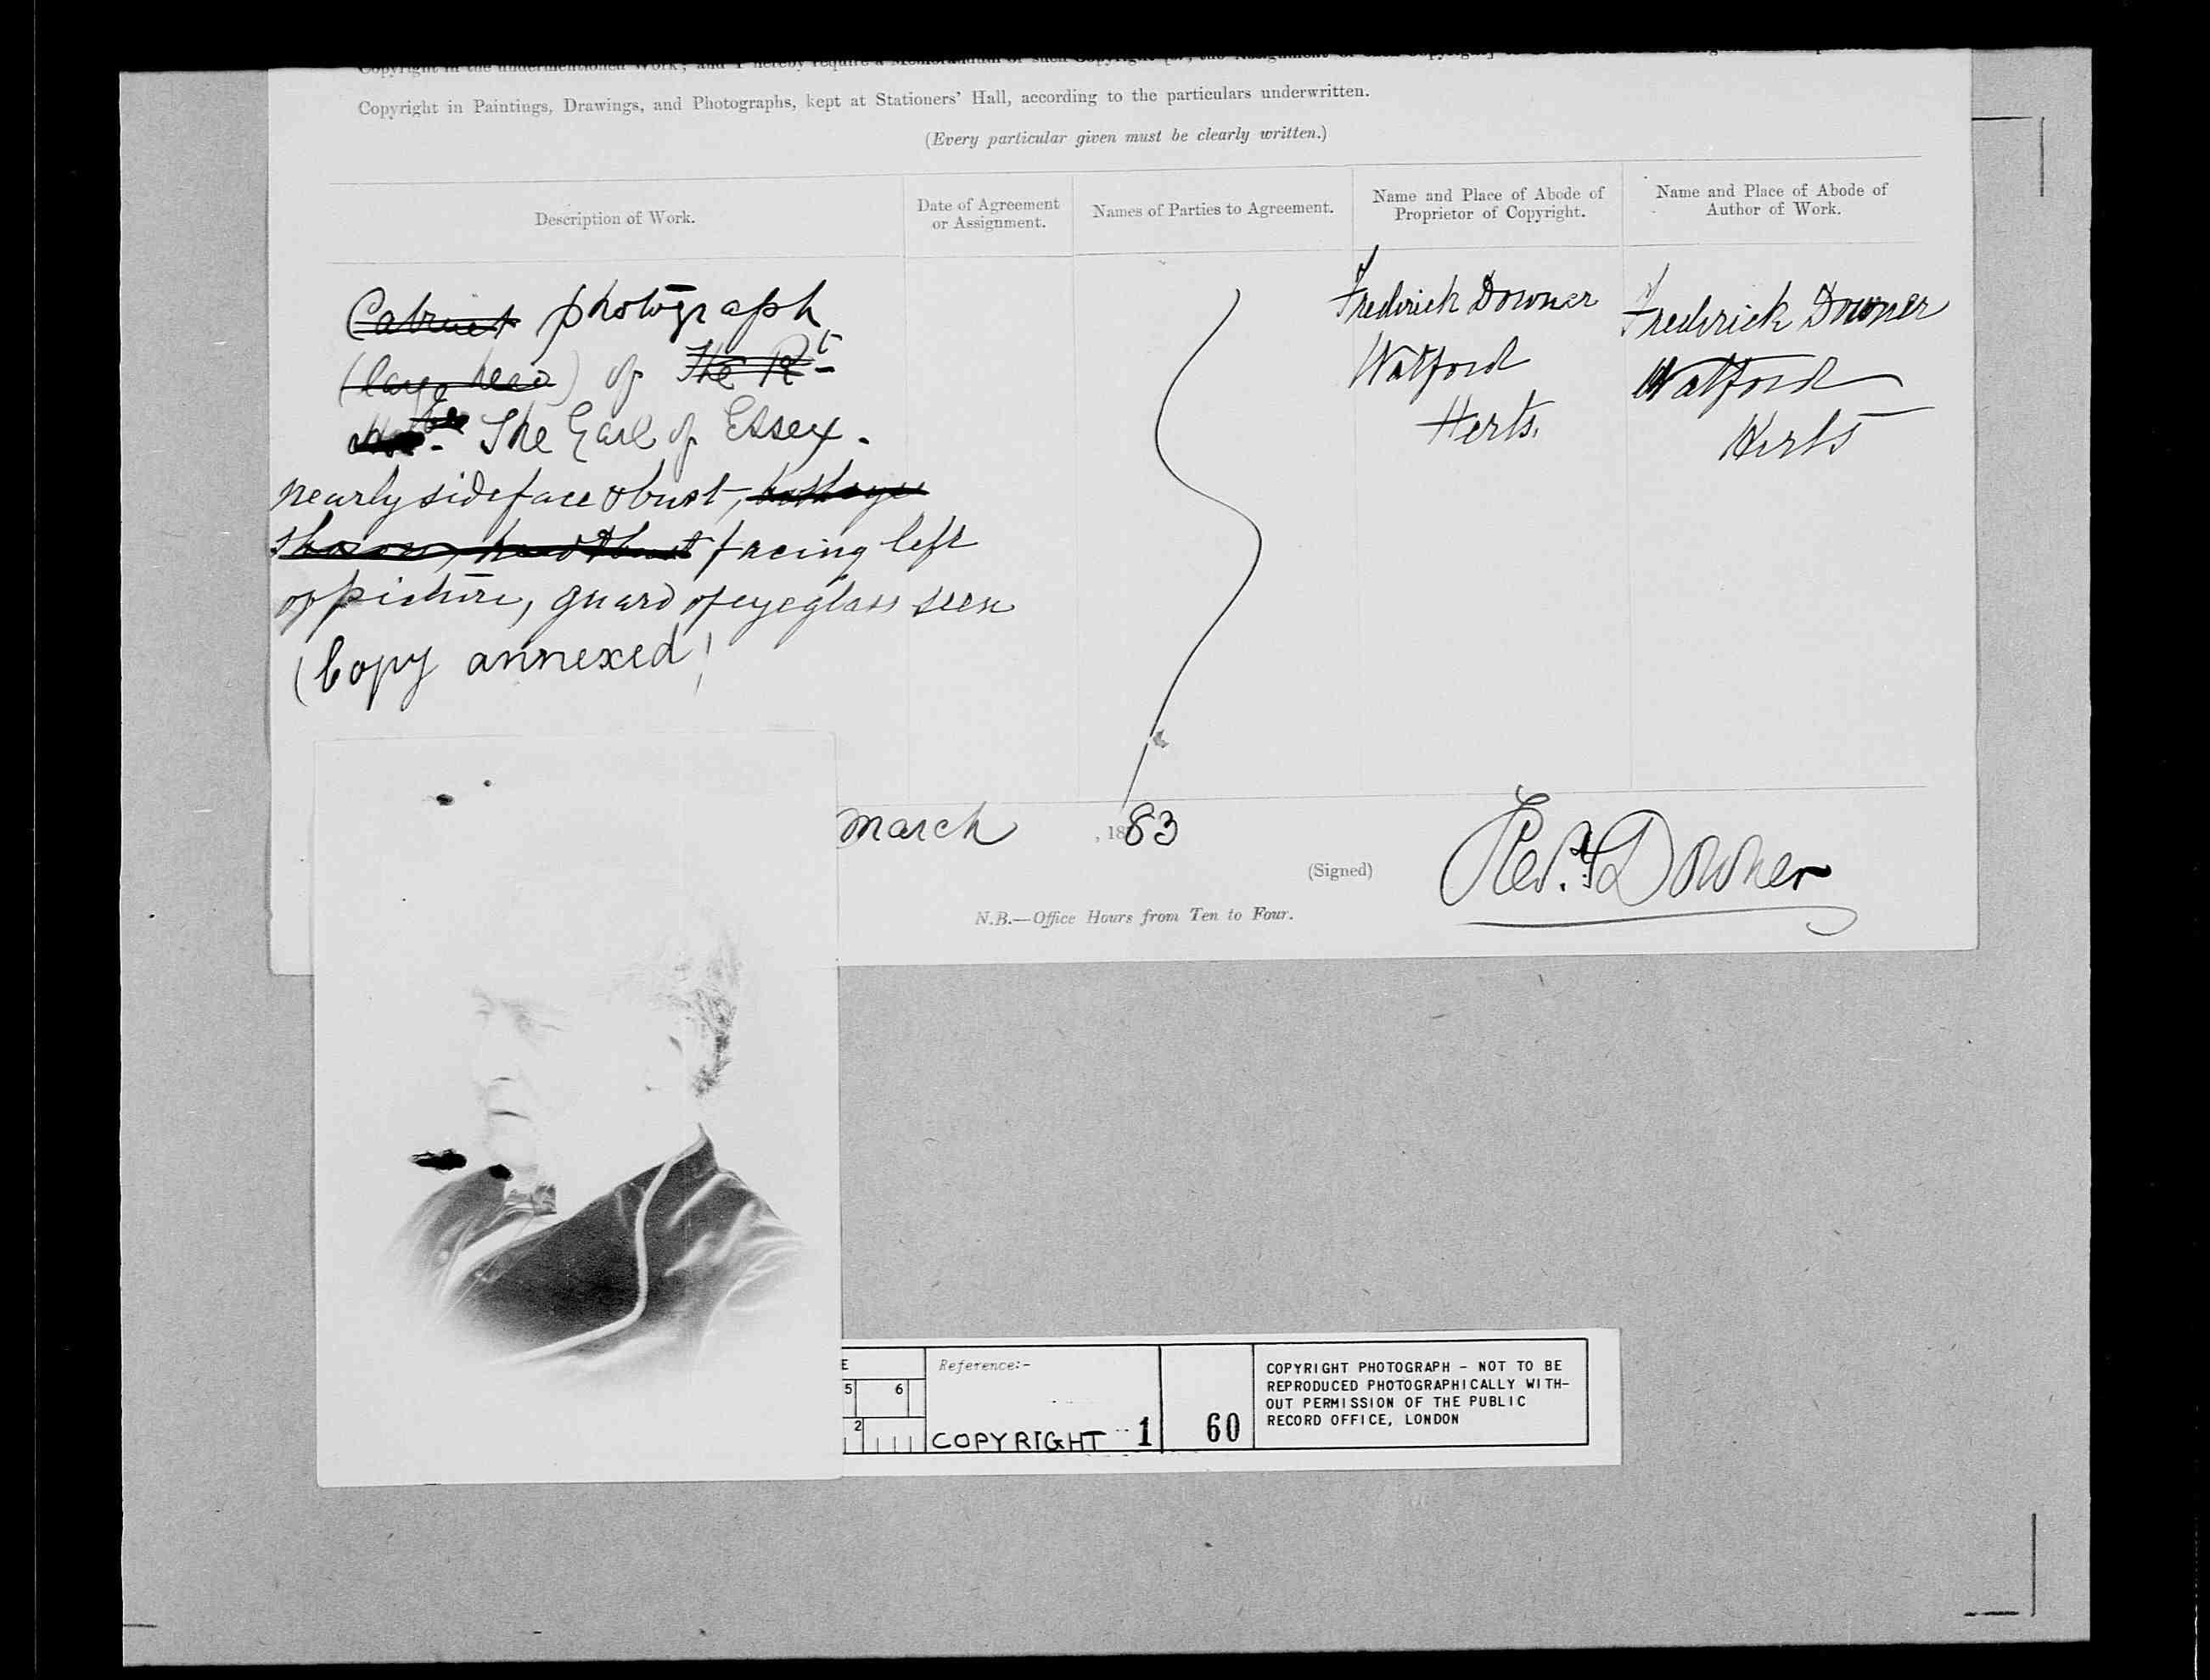 Copyright in the undermentioned Work, and I hereby require a Memorandum of such Copyright [or, the Assignment of such Copyright]
Copyright in Paintings, Drawings, and Photographs, kept at Stationers' Hall, according to the particulars underwritten.
(Every particular given must be clearly written.)
Description of Work.
Date of Agreement
or Assignment.
Names of Parties to Agreement.
Name and Place of Abode of
Proprietor of Copyright.
Name and Place of Abode of
Author of Work.
Cabinet photograph
(large head) of The Rt
Honble The Earl of Essex.
nearly sideface & bust,
facing left
of picture, guard of eyeglass seen
(Copy annexed)
Frederick Downer
Watford
Herts.
Frederick Downer
Watford
Herts
March , 1883
(Signed) Fredk Downer
N.B.—Office Hours from Ten to Four.
E
5 6
2
Reference:-
COPYRIGHT 1 60
COPYRIGHT PHOTOGRAPH - NOT TO BE
REPRODUCED PHOTOGRAPHICALLY WITH-
OUT PERMISSION OF THE PUBLIC
RECORD OFFICE, LONDON